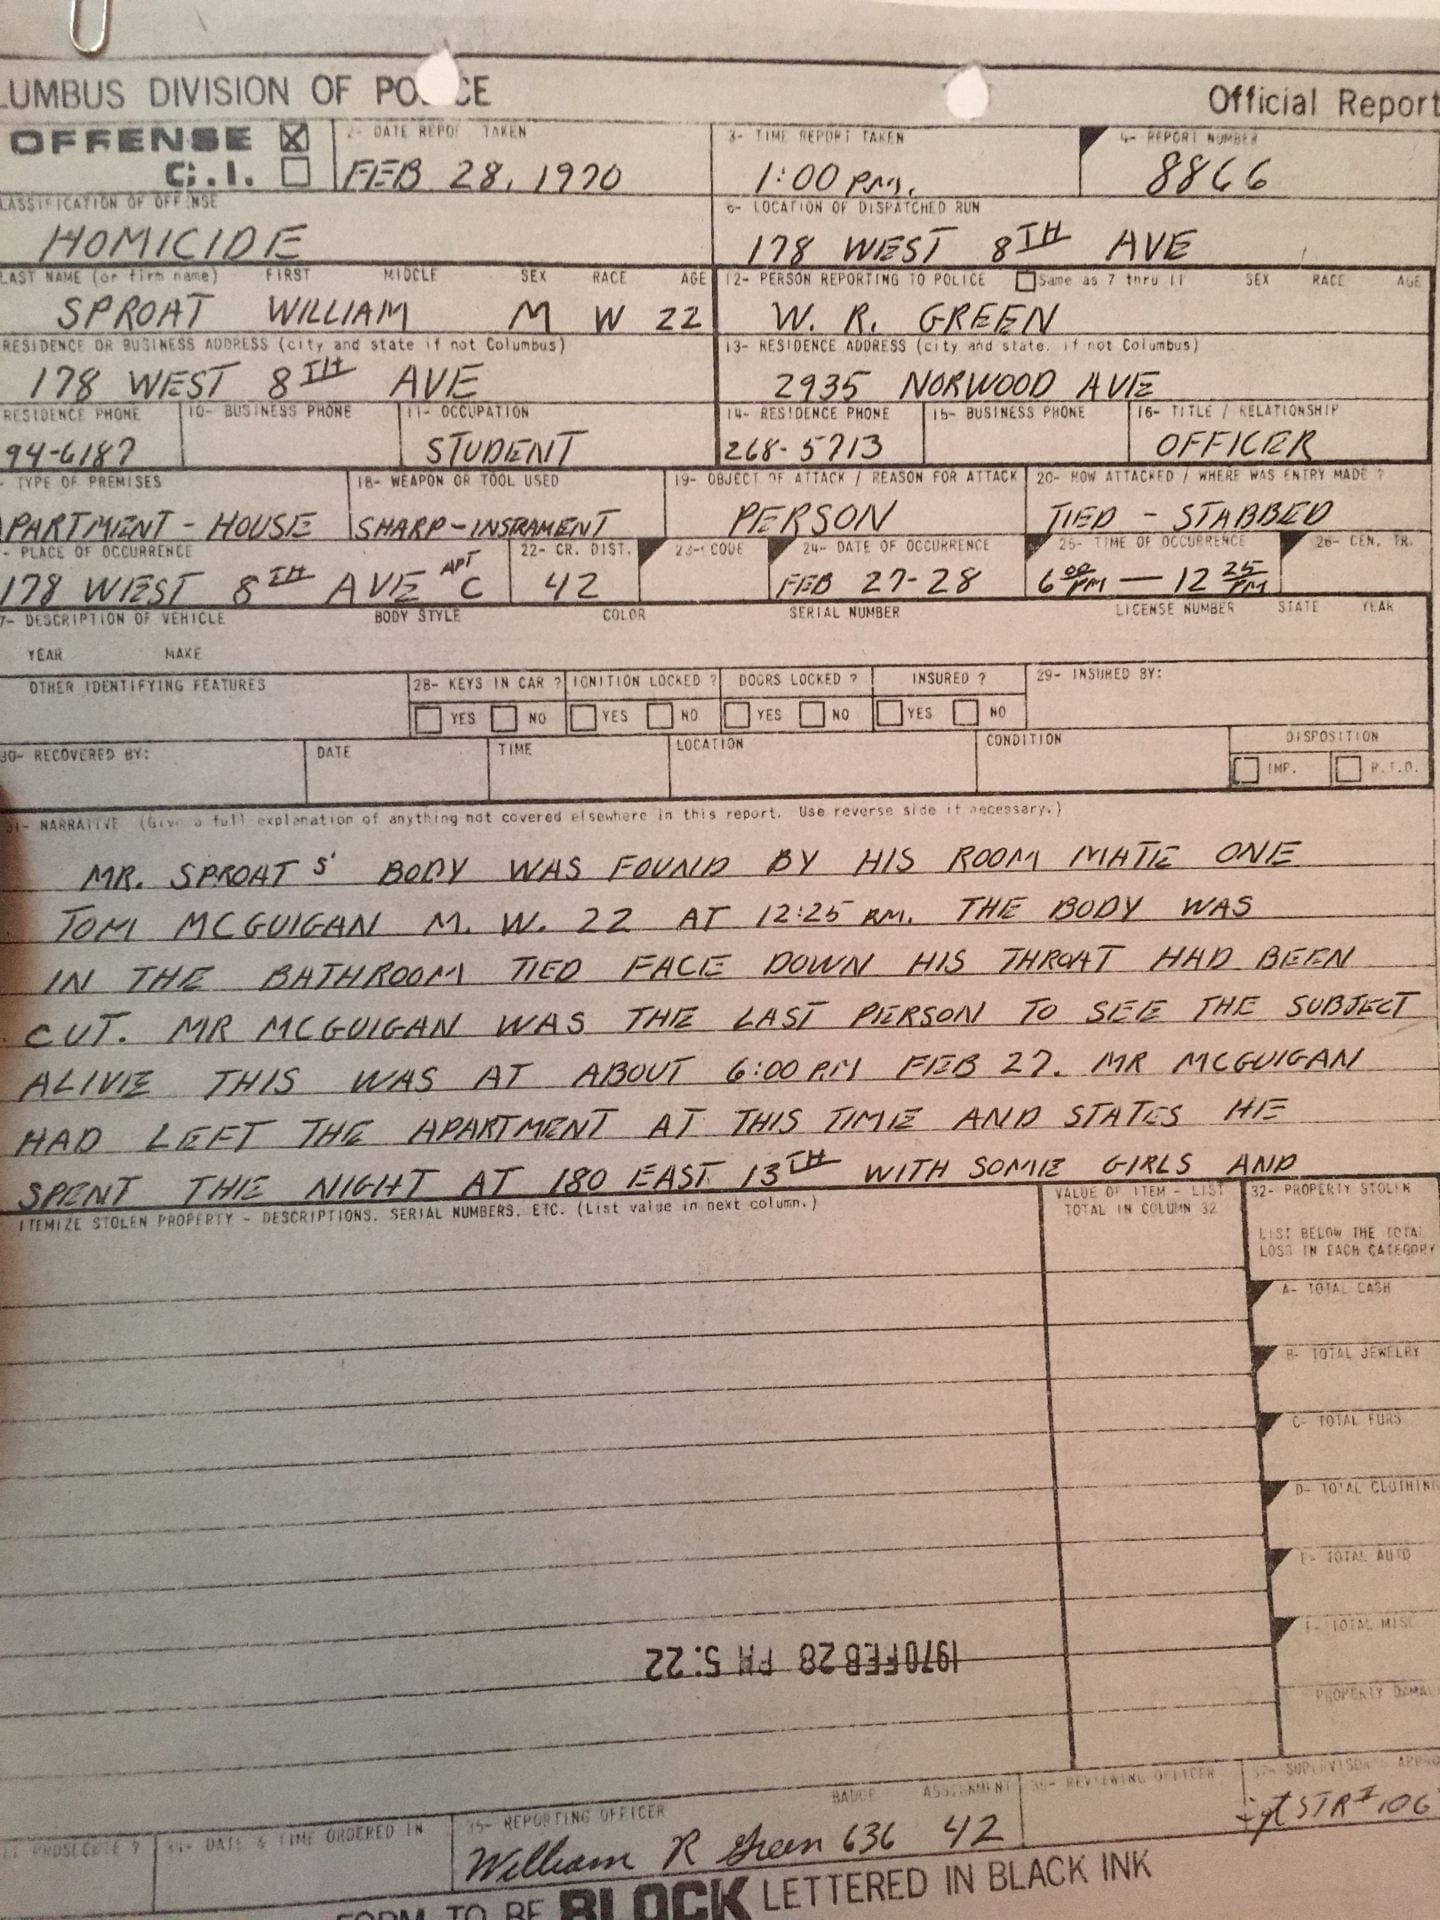 LUMBUS DIVISION OF PO CE Official Report
OFFENSE ☒ 2- DATE REPOR TAKEN 3- TIME REPORT TAKEN 4- REPORT NUMBER
C.I. ☐ FEB 28, 1970 1:00 P.M. 8866
LASSIFICATION OF OFFENSE 6- LOCATION OF DISPATCHED RUN
HOMICIDE 178 WEST 8TH AVE
LAST NAME (or firm name) FIRST MIDDLE SEX RACE AGE 12- PERSON REPORTING TO POLICE ☐ Same as 7 thru 11 SEX RACE AGE
SPROAT WILLIAM M W 22 W. R. GREEN
RESIDENCE OR BUSINESS ADDRESS (city and state if not Columbus) 13- RESIDENCE ADDRESS (city and state, if not Columbus)
178 WEST 8TH AVE 2935 NORWOOD AVE
RESIDENCE PHONE 10- BUSINESS PHONE 11- OCCUPATION 14- RESIDENCE PHONE 15- BUSINESS PHONE 16- TITLE / RELATIONSHIP
94-6187 STUDENT 268-5713 OFFICER
- TYPE OF PREMISES 18- WEAPON OR TOOL USED 19- OBJECT OF ATTACK / REASON FOR ATTACK 20- HOW ATTACKED / WHERE WAS ENTRY MADE ?
PARTMENT - HOUSE SHARP-INSTRAMENT PERSON TIED - STABBED
- PLACE OF OCCURRENCE 22- CR. DIST. 23- CODE 24- DATE OF OCCURRENCE 25- TIME OF OCCURRENCE 26- CEN. TR.
178 WEST 8TH AVE APT C 42 FEB 27-28 6 00 PM — 12 25 PM
7- DESCRIPTION OF VEHICLE BODY STYLE COLOR SERIAL NUMBER LICENSE NUMBER STATE YEAR
YEAR MAKE
OTHER IDENTIFYING FEATURES 28- KEYS IN CAR ? IGNITION LOCKED ? DOORS LOCKED ? INSURED ? 29- INSURED BY:
☐ YES ☐ NO ☐ YES ☐ NO ☐ YES ☐ NO ☐ YES ☐ NO
30- RECOVERED BY: DATE TIME LOCATION CONDITION DISPOSITION
☐ IMP. ☐ R.T.O.
31- NARRATIVE (Give a full explanation of anything not covered elsewhere in this report. Use reverse side if necessary.)
MR. SPROAT S' BODY WAS FOUND BY HIS ROOM MATE ONE
TOM MCGUIGAN M. W. 22 AT 12:25 P.M. THE BODY WAS
IN THE BATHROOM TIED FACE DOWN HIS THROAT HAD BEEN
CUT. MR MCGUIGAN WAS THE LAST PERSON TO SEE THE SUBJECT
ALIVE THIS WAS AT ABOUT 6:00 P.M FEB 27. MR MCGUIGAN
HAD LEFT THE APARTMENT AT THIS TIME AND STATES HE
SPENT THE NIGHT AT 180 EAST 13TH WITH SOME GIRLS AND
ITEMIZE STOLEN PROPERTY - DESCRIPTIONS, SERIAL NUMBERS, ETC. (List value in next column.) VALUE OF ITEM - LIST 32- PROPERTY STOLEN
TOTAL IN COLUMN 32
LIST BELOW THE TOTAL
LOSS IN EACH CATEGORY
A- TOTAL CASH
B- TOTAL JEWELRY
C- TOTAL FURS
D- TOTAL CLOTHING
E- TOTAL AUTO
F- TOTAL MISC
1970 FEB 28 PM 5:22
PROPERTY DAMA
PROSECUTE ? 34- DATE & TIME ORDERED IN 35- REPORTING OFFICER BADGE ASSIGNMENT 36- REVIEWING OFFICER 37- SUPERVISOR APPRO
William R Green 636 42
FORM TO BE BLOCK LETTERED IN BLACK INK